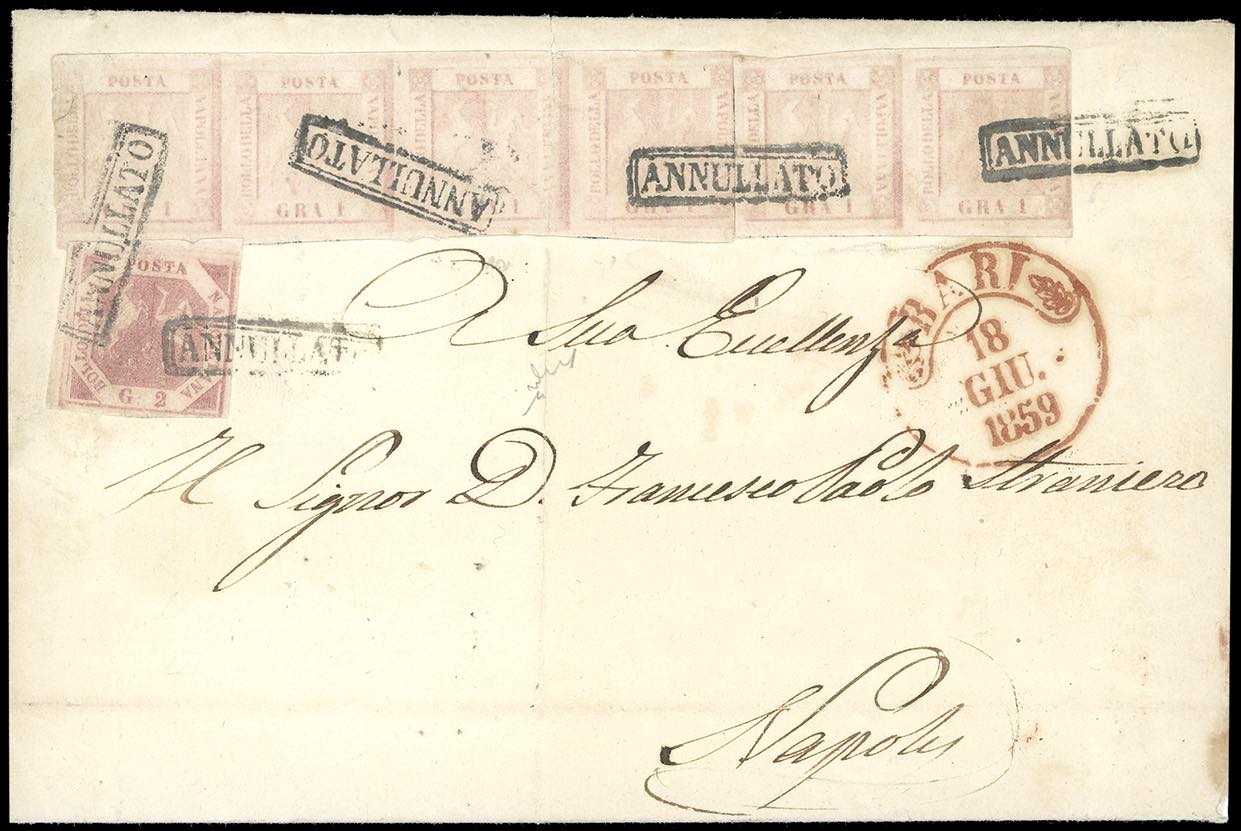 POSTA POSTA POSTA POSTA POSTA POSTA
BOLLO DELLA BOLLO DELLA BOLLO DELLA BOLLO DELLA BOLLO DELLA BOLLO DELLA
ANNULLATO ANNULLATO ANNULLATO ANNULLATO
1 GRA 1 1 GRA 1 GRA 1 GRA 1
POSTA
BOLLO DELLA
G. 2
ANNULLATO
BARI
18
GIU.
1859
A Sua Eccellenza
Il Signor D. Francesco Paolo Straniero
Napoli